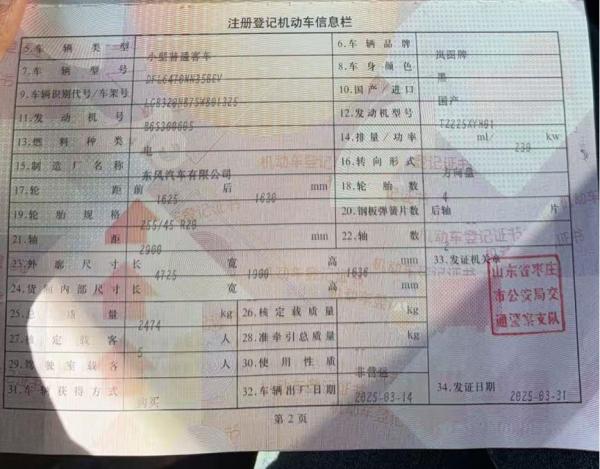 注册登记机动车信息栏
5.车辆类型 小型普通客车 6.车辆品牌 岚图牌
7.车辆型号 DFL6470NN35BEV 8.车身颜色 黑
9.车辆识别代号/车架号 10.国产/进口 国产
11.发动机号 12.发动机型号 TZ225XYH01
13.燃料种类 电 14.排量/功率 ml/ 230 kw
15.制造厂名称 东风汽车有限公司 16.转向形式 方向盘
17.轮距 前 1625 后 1630 mm 18.轮胎数 4
19.轮胎规格 255/45 R20 20.钢板弹簧片数 后轴 片
21.轴距 2900 22.轴数 2
23.外廓尺寸 长 4725 宽 1900 高 1636 mm 33.发证机关章
24.货厢内部尺寸 长 宽 高 mm
山东省枣庄
市公安局交
通警察支队
25.总质量 2474 kg 26.核定载质量 kg
27.核定载客 5 人 28.准牵引总质量 kg
29.驾驶室载客 人 30.使用性质 非营运
31.车辆获得方式 购买 32.车辆出厂日期 2025-03-14 34.发证日期 2025-03-31
第2页